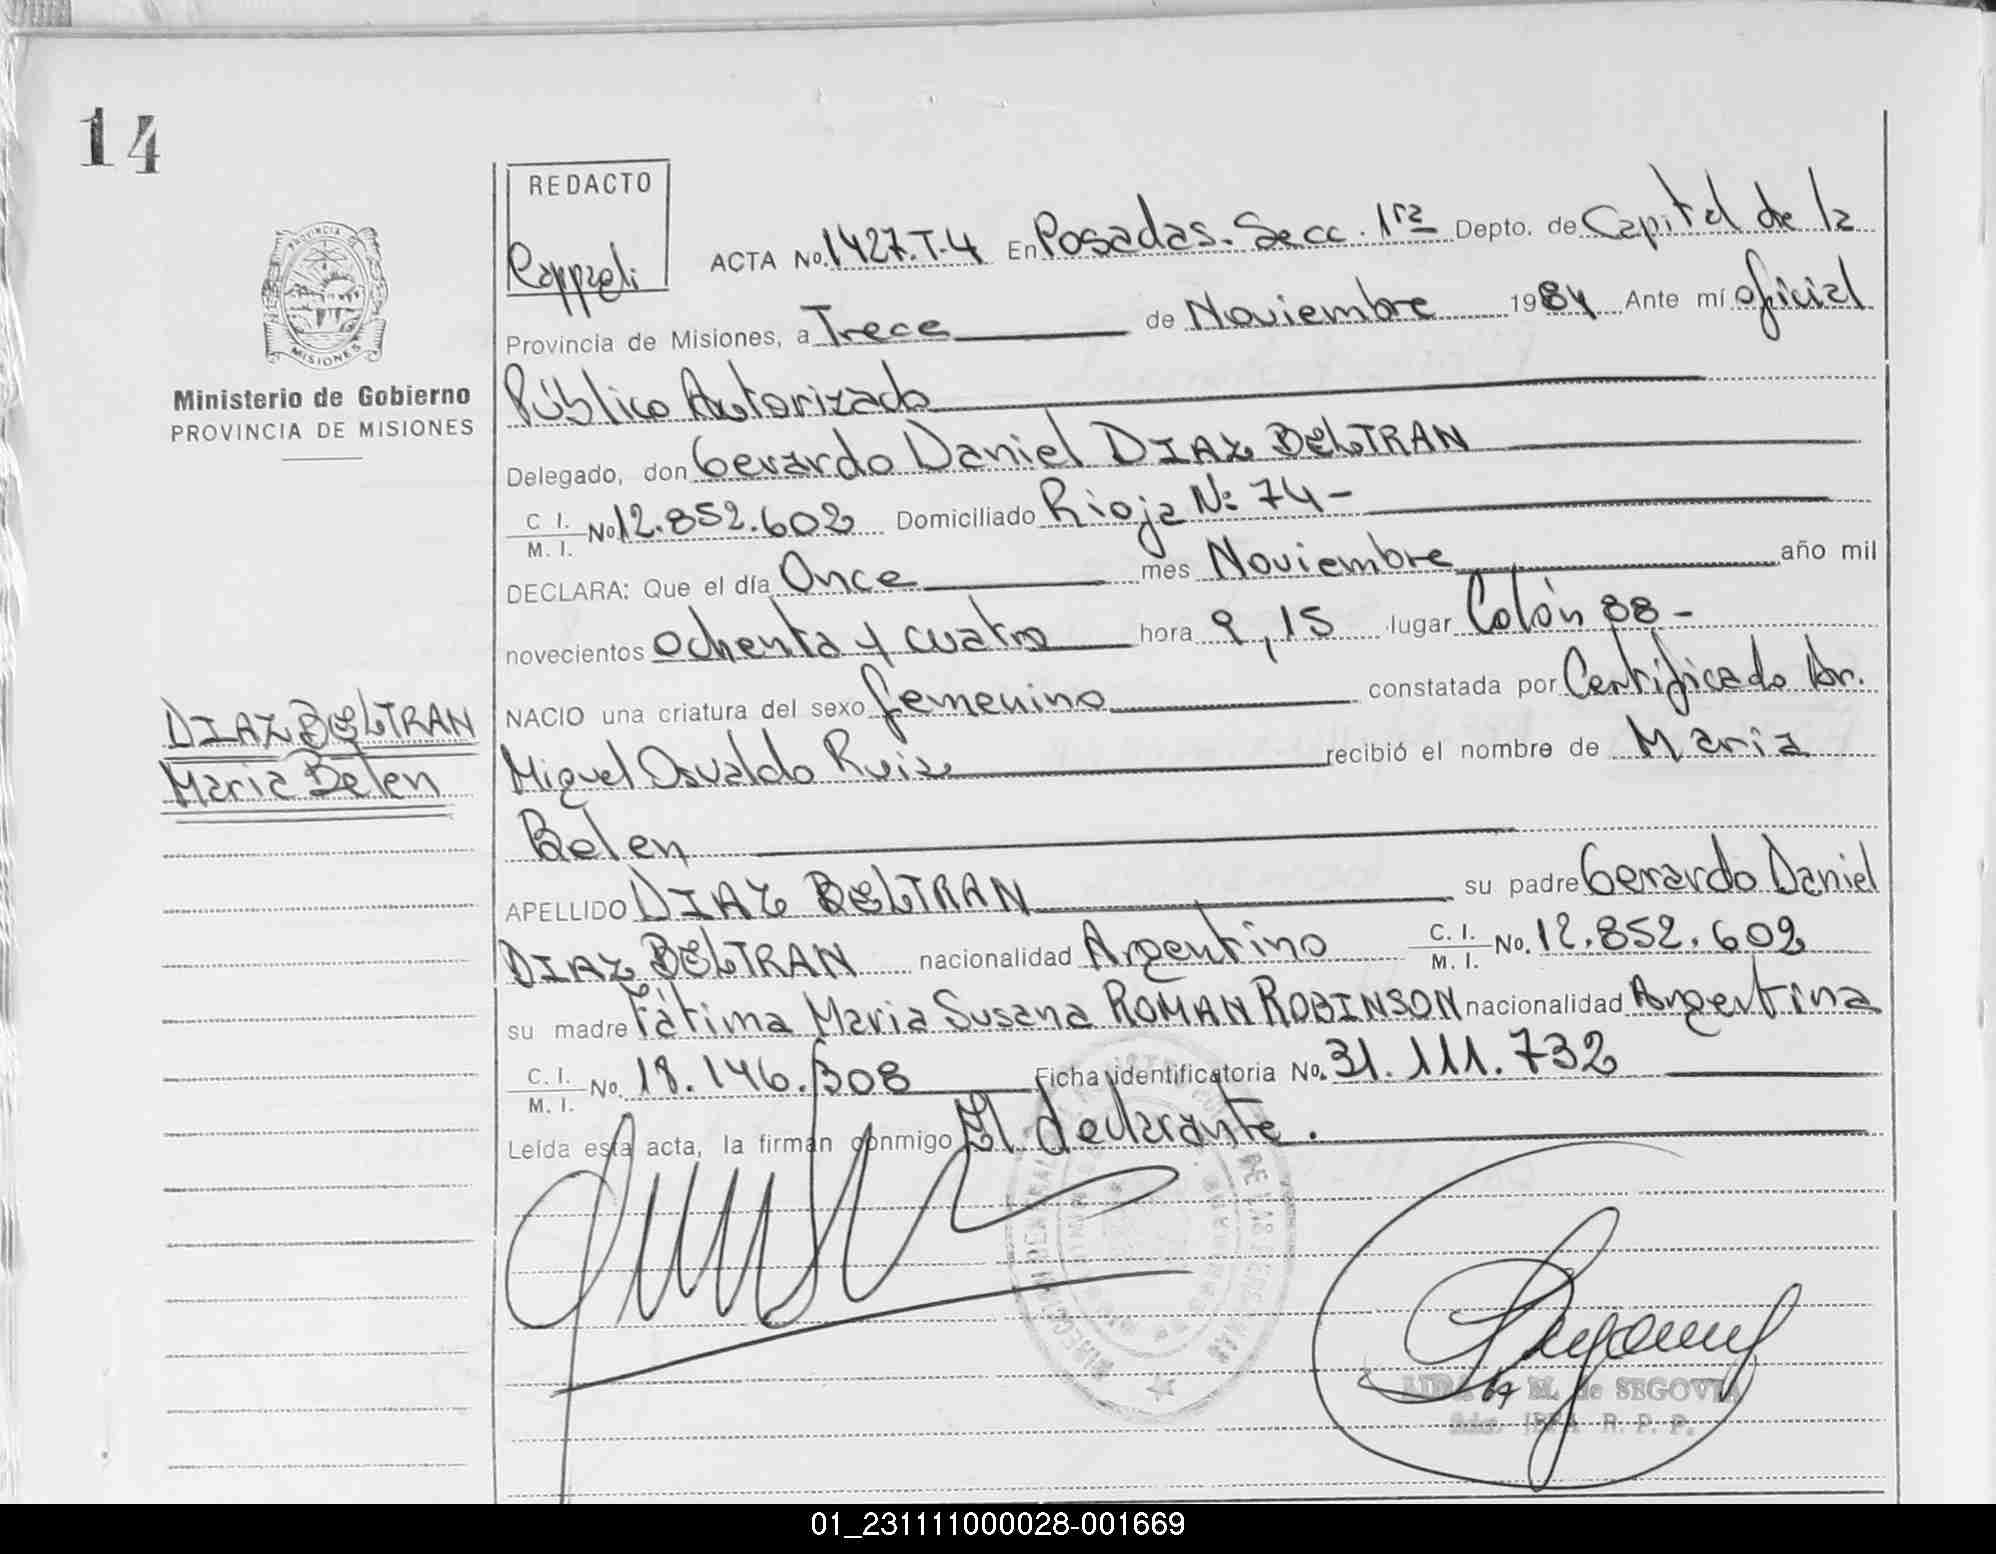 14
REDACTO
PROVINCIA DE
MISIONES
Ministerio de Gobierno
PROVINCIA DE MISIONES
ACTA No. 1427.T-4 En Posadas. Secc. 1ra Depto. de Capital de la
Provincia de Misiones, a Trece de Noviembre 1984 Ante mí oficial
Público Autorizado
Delegado, don Gerardo Daniel DIAZ BELTRAN
C. I. M. I. No 12.852.602 Domiciliado Rioja Nº 74-
DECLARA: Que el día Once mes Noviembre año mil
novecientos ochenta y cuatro hora 9,15 lugar Colón 88-
NACIO una criatura del sexo femenino constatada por Certificado Dr.
Miguel Osvaldo Ruiz recibió el nombre de Maria
Belen
APELLIDO DIAZ BELTRAN su padre Gerardo Daniel
DIAZ BELTRAN nacionalidad Argentino C. I. M. I. No. 12.852.602
su madre Fátima Maria Susana ROMAN ROBINSON nacionalidad Argentina
C. I. M. I. No. 18.146.308 Ficha identificatoria No. 31.111.732
Leída esta acta, la firman conmigo El declarante.
DIAZ BELTRAN
Maria Belen
M. de SEGOVIA
R. P. P.
01_231111000028-001669